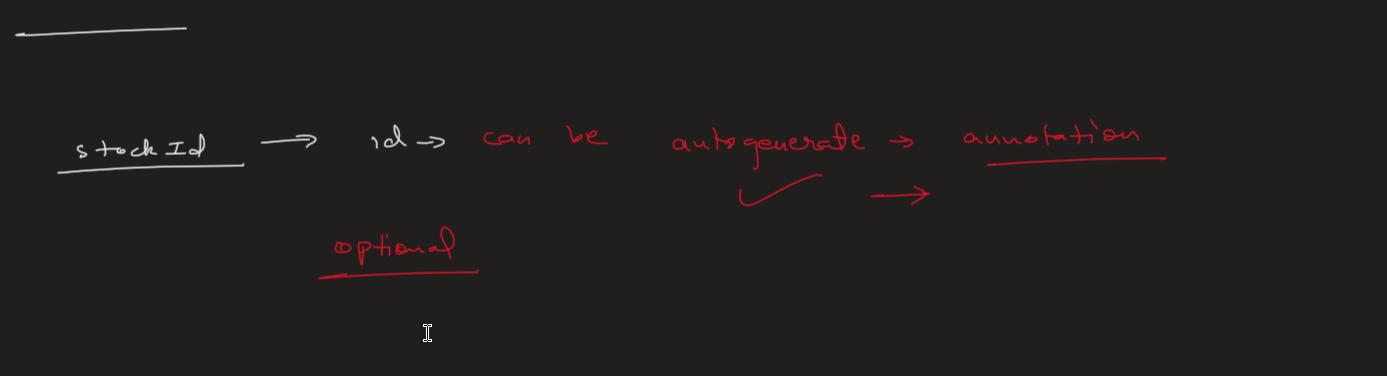 stockId → id → can be autogenerate → annotation
optional